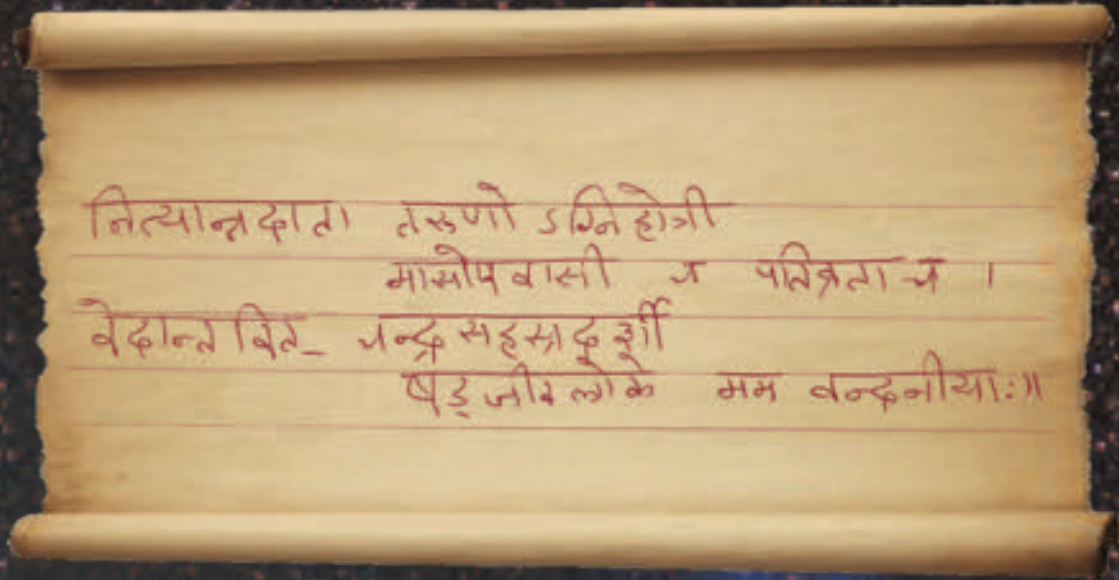 नित्यान्नदाता तरुणो ऽग्निहोत्री
मासोपवासी च पतिव्रता च ।
वेदान्त वित् चन्द्र सहस्रदर्शी
षड् जीव लोके मम वन्दनीयाः॥